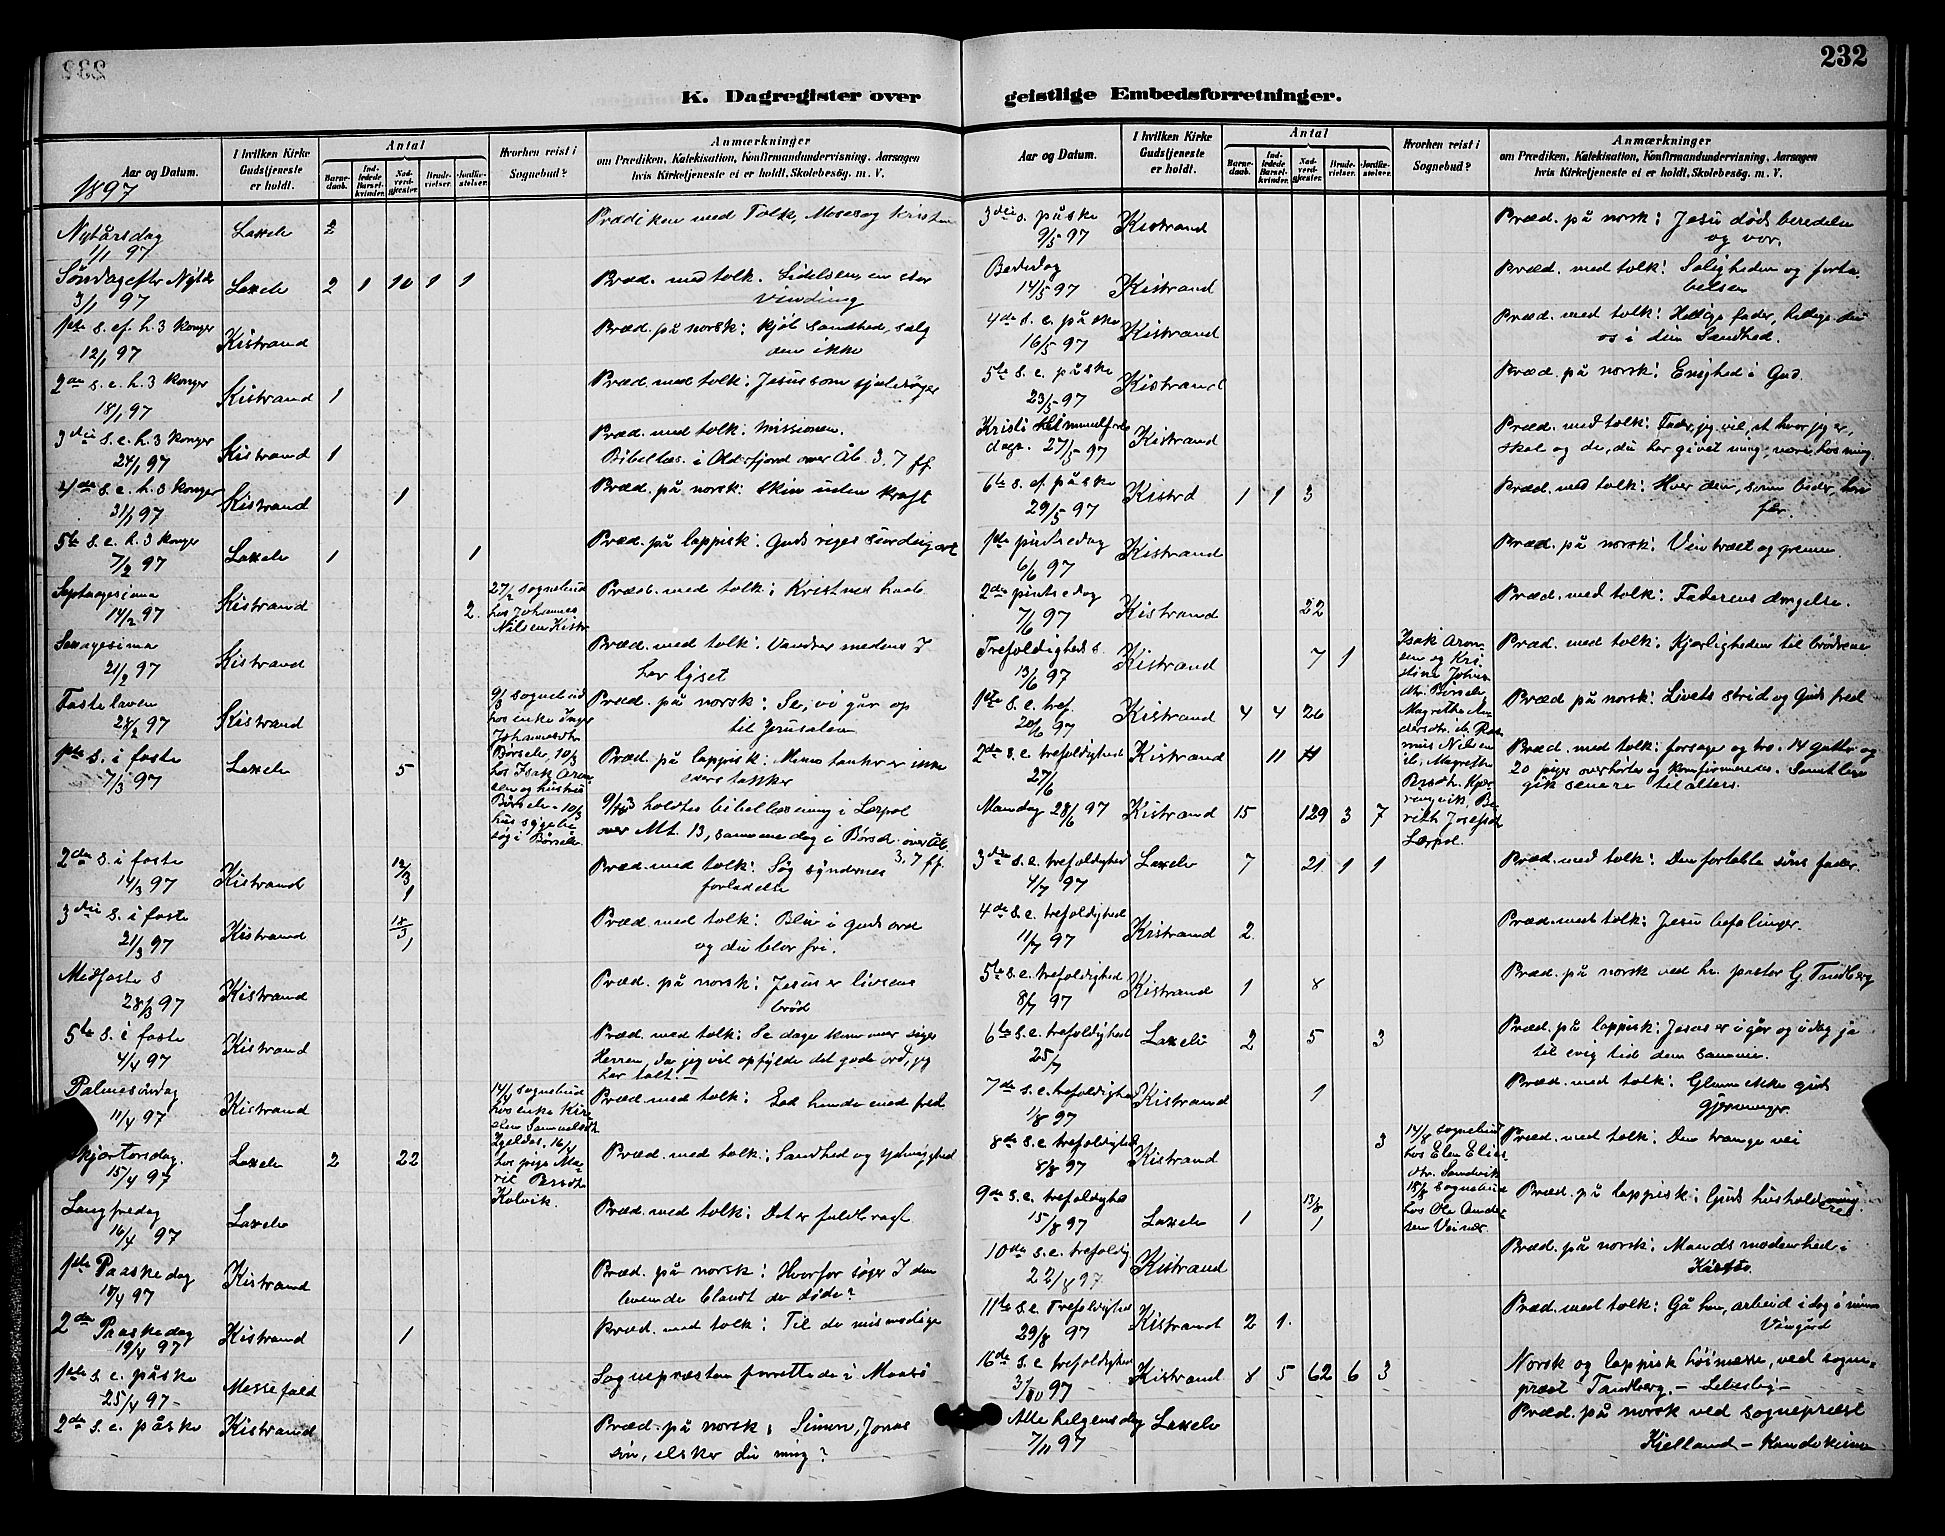 232
K. Dagregister over geistlige Embedsforretninger.
Aar og Datum.
I hvilken Kirke Gudstjeneste er holdt.
Antal
Barne-daab.
Ind-ledede Barsel-kvinder.
Nad-verd-gjester.
Brude-vielser.
Jordfæ-stelser.
Hvorhen reist i Sognebud?
Anmærkninger
om Prædiken, Katekisation, Konfirmandundervisning, Aarsagen
hvis Kirketjeneste ei er holdt, Skolebesøg. m. V.
1897
Nytårsdag 1/1 97 Laxelv 2 Prædiken med Tolk, Moses og Kristus
Søndag efter Nytår 3/1 97 Laxelv 2 1 10 1 1 Præd. med tolk. Lidelsen, en stor
vinding
1ste s. ef. h. 3 konger 12/1 97 Kistrand Præd. på norsk: Kjøb sandhed, sælg
den ikke
2den s. e. h. 3 konger 18/1 97 Kistrand 1 Præd. med tolk: Jesus som sjælesøger
3die s. e. h. 3 konger 24/1 97 Kistrand 1 Præd. med tolk: Missionen.
Bibellæs. i Olderfjord over Åb. 3, 7 ff
4de s. e. h. 3 konger 31/1 97 Kistrand 1 Præd. på norsk: Skin uden kraft
5te s. e. h. 3 konger 7/2 97 Laxelv 1 1 Præd. på lappisk: Guds riges surdeigart
Septuagesima 14/2 97 Kistrand 2. 27/2 sognebud
hos Johannes
Nilsen Kistr. Præd. med tolk: Kristnes haab.
Sexagesima 21/2 97 Kistrand Præd. med tolk: Vandrer medens I
har lyset
Fastelaven 28/2 97 Kistrand 9/3 sognebud
hos enke Inger
Johannesdtr
Børselv, 10/3
hos Isak Aron-
sen og hustru
Børselv. 10/3 Præd. på norsk: Se, vi går op
til Jerusalem
1ste s. i faste 7/3 97 Laxelv 5 Præd. på lappisk: Mine tanker er ikke
eders tanker
9/3 holdtes bibellæsning i Lærpol
over Mt. 13, samme dag i Børselv over Åb.
3, 7 ff.
2den s. i faste 14/3 97 Kistrand 12/3 1 Præd. med tolk: Søg syndernes
forladelse
3die s. i faste 21/3 97 Kistrand 18/3 1 Præd. med tolk: Bliv i guds ord
og du blir fri.
Midfaste s 28/3 97 Kistrand Præd. på norsk: Jesus er livsens
brød
5te s. i faste 4/4 97 Kistrand Præd. med tolk: Se dage kommer siger
Herren, da jeg vil opfylde det gode ord, jeg
har talt. —
Palmesøndag 11/4 97 Kistrand 14/4 sognebud
hos enke Kir-
sten Samuelsdtr
Igeldas. 16/4
hos pige Ma-
rit Persdtr
Kolvik. Præd. med tolk: Lad hende med fred
Skjærtorsdag. 15/4 97 Laxelv 2 22 Præd. med tolk: Sandhed og ydmyghed
Langfredag 16/4 97 Laxelv Præd. med tolk: Det er fuldbragt
1ste Paaskedag 18/4 97 Kistrand Præd. på norsk: Hvorfor søger I den
levende blandt de døde?
2den Paaskedag 19/4 97 Kistrand 1 Præd. med tolk: Til de mismodige
1ste s. e. påske 25/4 97 – Messefald Sognepræsten forrettede i Maasø
2den s. e. påske Kistrand Præd. på norsk: Simon, Jonas
søn, elsker du mig?
Aar og Datum.
I hvilken Kirke Gudstjeneste er holdt.
Antal
Barne-daab.
Ind-ledede Barsel-kvinder.
Nad-verd-gjester.
Brude-vielser.
Jordfæ-stelser.
Hvorhen reist i Sognebud?
Anmærkninger
om Prædiken, Katekisation, Konfirmandundervisning, Aarsagen
hvis Kirketjeneste ei er holdt, Skolebesøg. m. V.
3die s. påske 9/5 97 Kistrand Præd. på norsk: Jesu døds beredelse
og vor.
Bededag 14/5 97 Kistrand Præd. med tolk: Saligheden og forta-
belsen
4de s. e. påske 16/5 97 Kistrand Præd. med tolk: Hellige fader, hellige du
os i din Sandhed.
5te s. e. påske 23/5 97 Kistrand Præd. på norsk: Enighed i Gud.
Kristi Himmelfarts dag. 27/5 97 Kistrand Præd. med tolk: Fader, jeg vil, at hvor jeg er,
skal og de, du har givet mig, være hos mig.
6te s. ef. påske 29/5 97 Kistrd 1 1 3 Præd. med tolk: Hver den, som beder, han
får.
1ste pintsedag 6/6 97 Kistrand Præd. på norsk: Vintræet og grenene
2den pintsedag 7/6 97 Kistrand 22 Præd. med tolk: Faderens dragelse.
Trefoldigheds s. 13/6 97 Kistrand 7 1 Isak Aron-
sen og Kri-
stine Johns-
dtr. Børselv, Præd. med tolk: Kjærligheden til brødrene
1ste s. e. tref. 20/6 97 Kistrand 4 4 26 Magrethe An-
dersdtr. Præd på norsk: Livets strid og Guds fred
2den s. e. trefoldighed 27/6 Kistrand 11 Præd. med tolk: forsage og tro. 14 gutter og
20 piger overhørtes og konfirmeredes. Samtlige
gik senere til alters.
Mandag 28/6 97 Kistrand 15 129 3 7 rith Josefsdtr
Lærpol.
3die s. e. trefoldighed 4/7 97 Laxelv 7 21 1 1 Præd. med tolk: Den fortabte søns fader.
4de s. e. trefoldighed 11/7 97 Kistrand 2. Præd. med tolk: Jesu befalinger.
5te s. e. trefoldighed 8/7 97 Kistrand 1 8 Præd. på norsk ved hr. pastor G. Tandberg
6te s. e. trefoldighed 25/7 Laxelv 2 5 3 Præd. på lappisk: Jesus er igår og idag ja
til evig tid den samme.
7de s. e. trefoldighed 1/8 97 Kistrand 1 Præd. med tolk: Glem ikke guds
gjerninger.
8de s. e. trefoldighed 8/8 97 Kistrand 3 14/8 sognebud
hos Elen Elias-
dtr. Sandvik
15/8 sognebud
hos Ole Ander-
sen Veines Præd. med tolk: Den trange vei
9de s. e. trefoldighed 15/8 97 Laxelv 1 13/8 1 Præd. på lappisk: Guds husholdning
10de s. e. trefoldig. 22/8 97 Kistrand Præd. på norsk: Mands modenhed i
Kristus.
11te s. e. Trefoldighed 29/8 97 Kistrand 2 1. Præd. med tolk: Gå hen, arbeid i dag i min
Vingård
16de s. e. trefoldighed 3/10 97 Kistrand 8 5 62 6 3 Norsk og lappisk høimesse, ved sogne-
præst Tandberg. – Lebesby –
Alle helgens dag 7/11 97 Laxelv Præd. på norsk ved sognepræst
Kjelland – Kautokeino